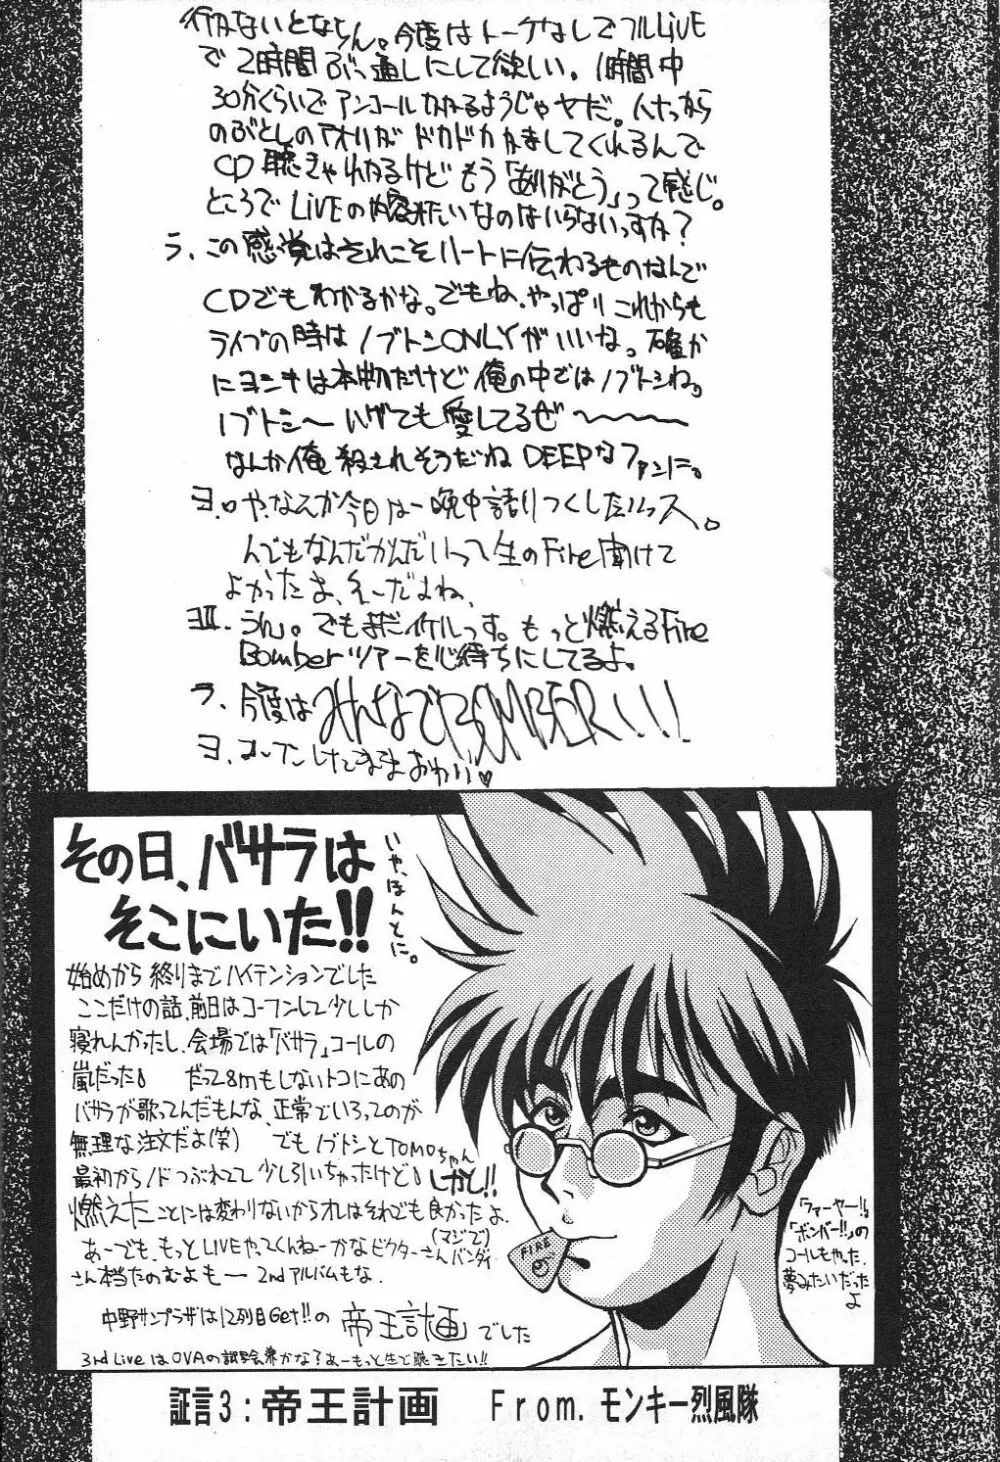 行かないとならん。今度はトークなしでフルLiVE
で2時間ぶっ通しにして欲しい。1時間中
30分くらいでアンコールかかるようじゃヤだ。人さっから
のぶとしのアオリがドカドカかましてくれるんで
CD聴きゃわかるけどもう「ありがとう」って感じ。
ところでLiVEの内容みたいなのはいらないっすか？
ラ、この感覚はそれこそハートに伝わるものなんで
CDでもわかるかな。でもね、やっぱりこれからも
ライブの時はノブトシONLYがいいな。確か
にヨシキは本物だけど俺の中ではノブトシね。
ノブトシ〜いつでも愛してるぜ〜〜〜〜
なんか俺殺されそうだねDEEPなファンに。
ヨ.や、なんか今日は一晩中語りつくしたいッス。
んでもなんだかんだいって生のFire聞けて
よかったよ、そーだよね、
ヨⅡ.うん。でもまだイケルっす。もっと燃えるFire
Bomberツアーを心待ちにしてるよ。
ラ.今度はみんなでBOMBER!!!
ヨ.コーフンしたままおわり♥
その日、バサラは
そこにいた!!
いや、ほんとに。
始めから終りまでハイテンションでした
ここだけの話、前日はコーフンして少ししか
寝れんかったし、会場では「バサラ」コールの
嵐だった♪ だって8mもしないトコにあの
バサラが歌ってんだもんな、正常でいろってのが
無理な注文だよ(笑) でもノブトシとTOMOちゃん
最初からノドつぶれてて少し引いちゃったけど♪しかし!!
燃えたことには変わりないからオレはそれでも良かったよ.
(マジで)
あーでも、もっとLIVEやってくんねーかなビクターさんバンダイ
さん本当たのむよもー 2ndアルバムもな.
中野サンプラザは12列目Get!!の 帝王計画 でした
3rd LiveはOVAの試写会兼かな?あーもっと生で聴きたい!!
FIRE
「ファーヤー!!」
「ボンバー!!」の
コールもやった.
夢みたいだった
よ
証言3:帝王計画 From.モンキー烈風隊